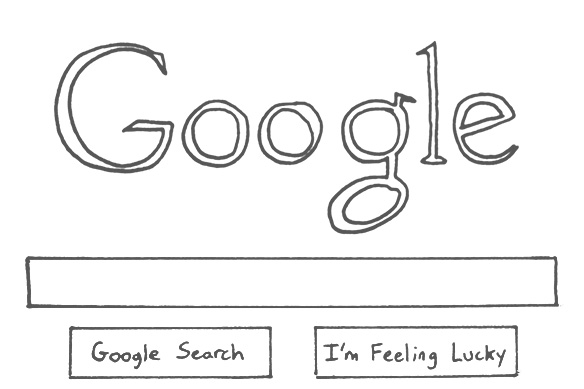 Google
Google Search
I'm Feeling Lucky